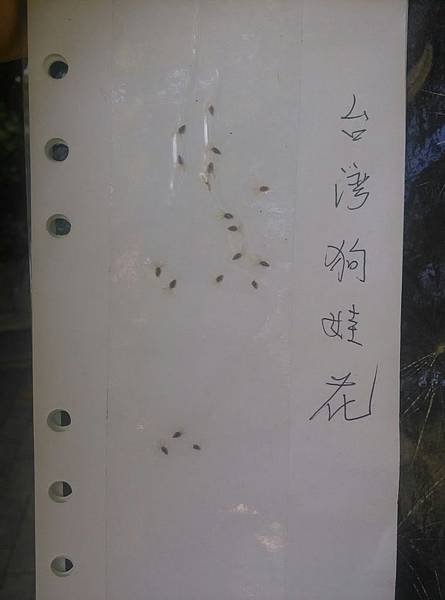 台湾狗娃花